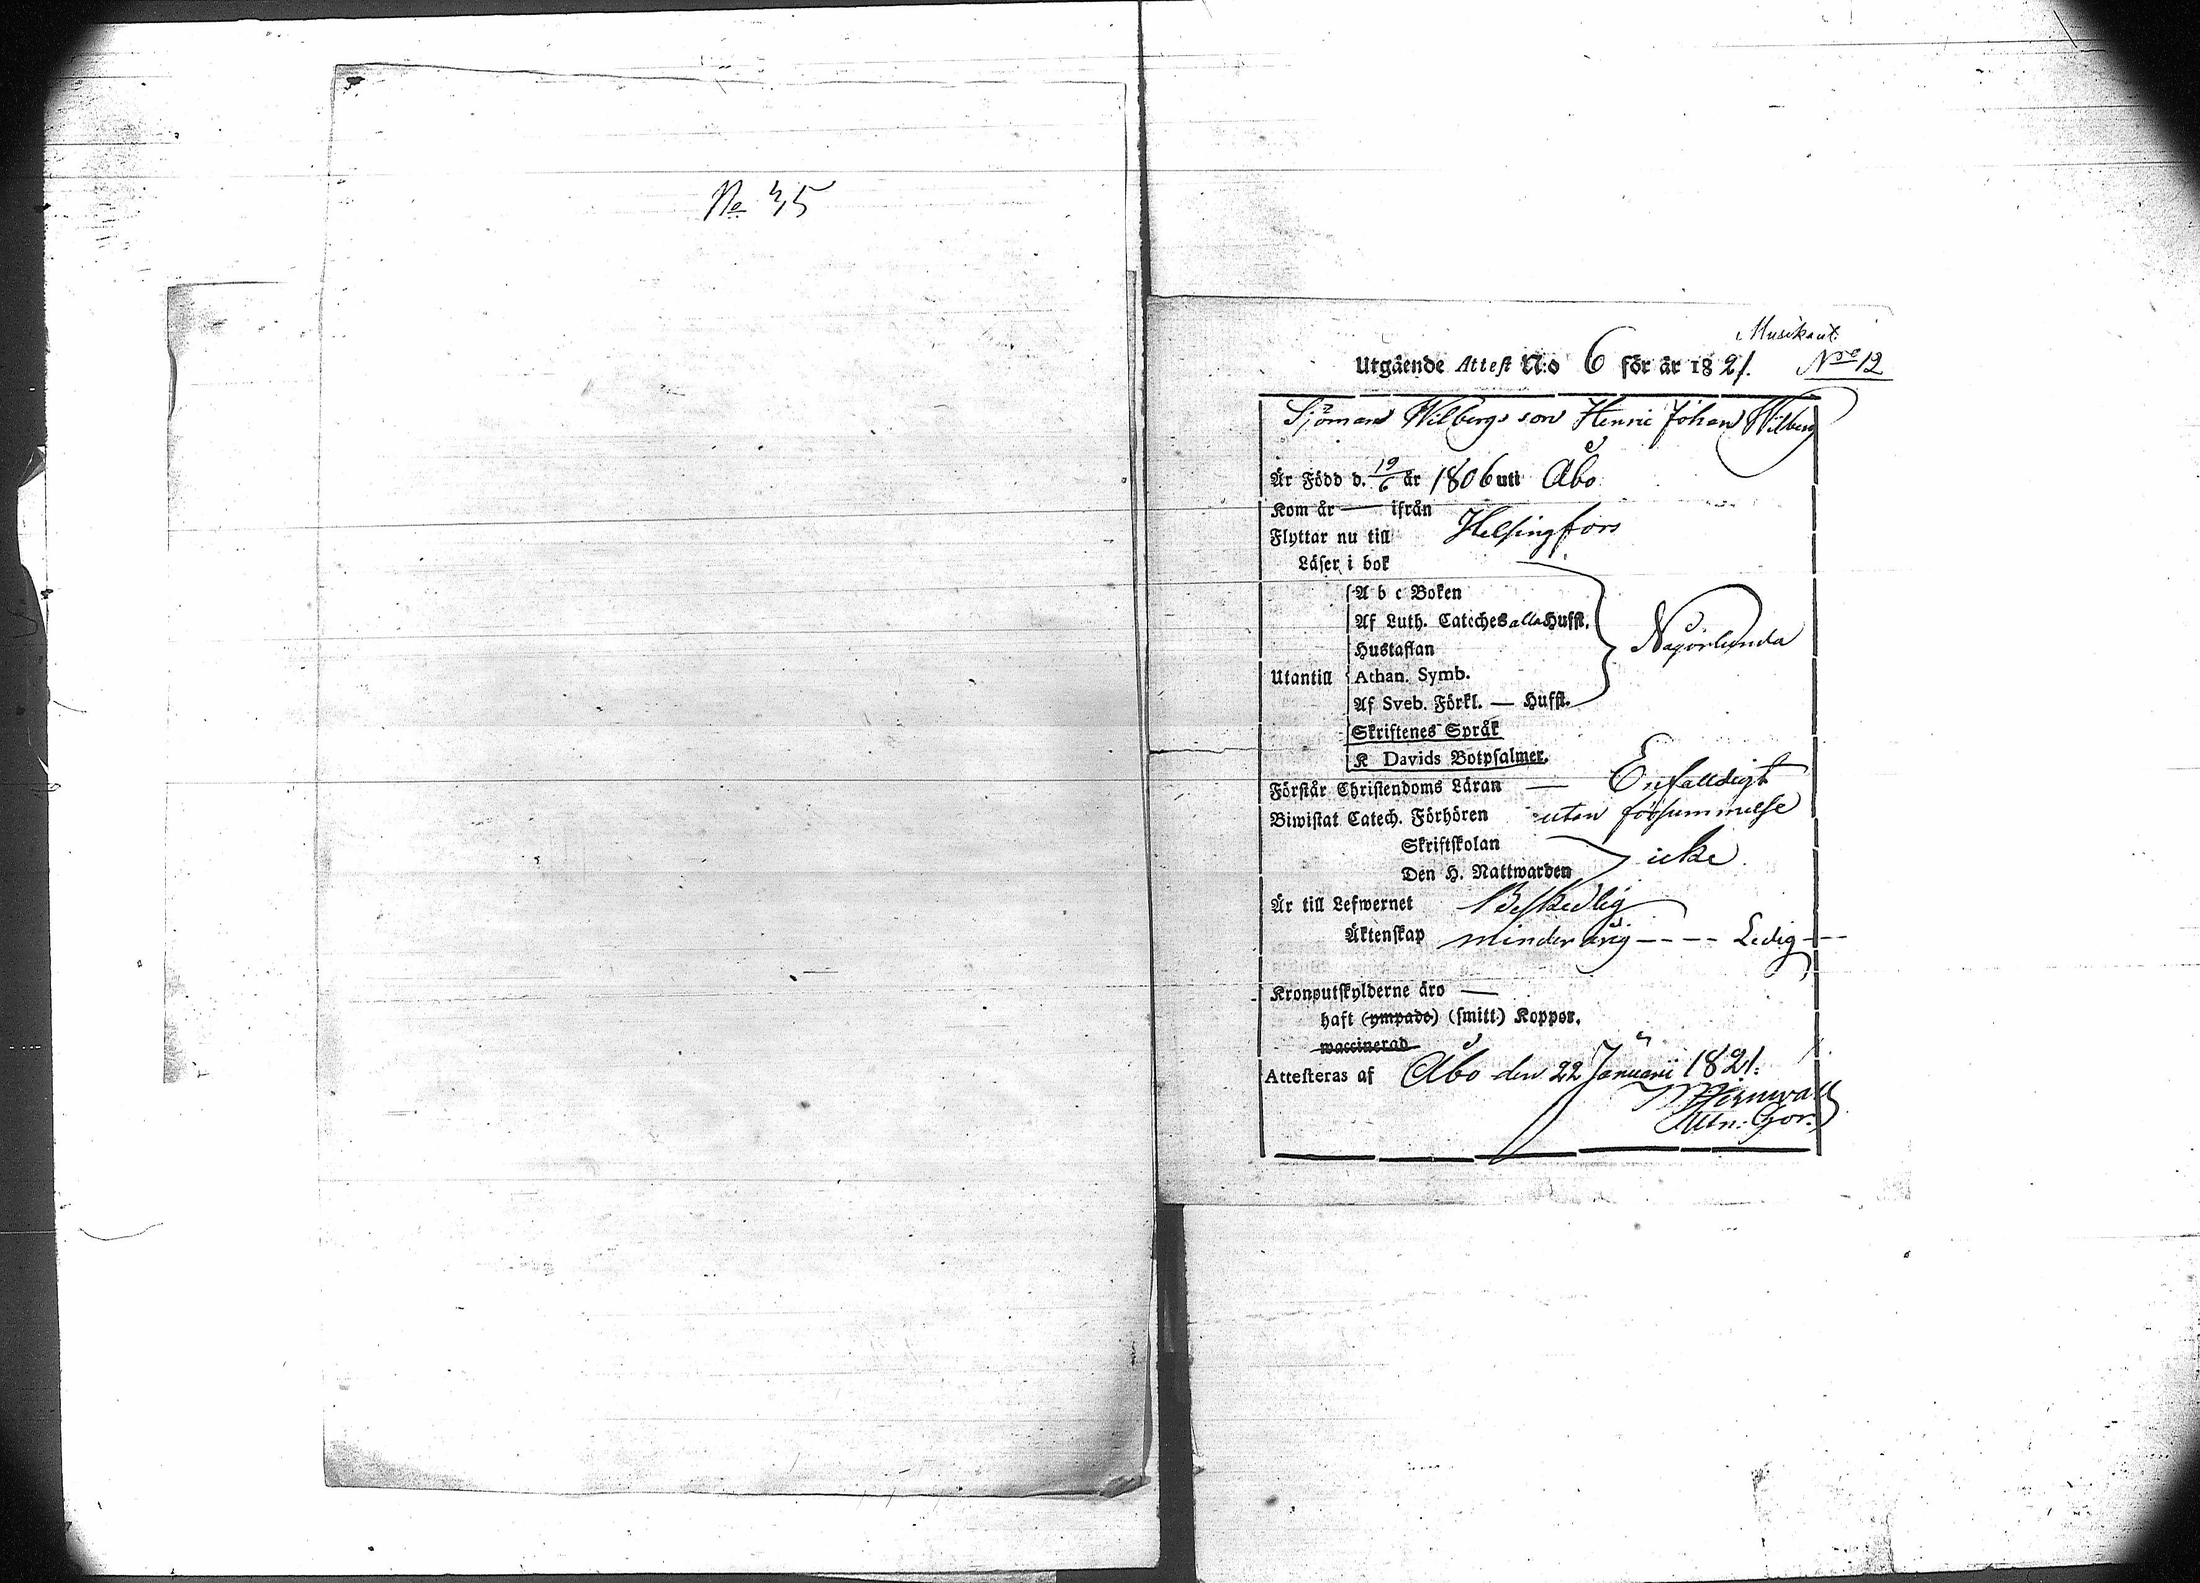 No 35
Musikant.
Utgående Attest N:o 6 för år 1821. Nro 12
Sjöman Wilbergs son Henric Johan Wilberg
Är Född d. 19/6 år 1806 uti Åbo
Kom år — ifrån
Flyttar nu till Helsingfors
Läser i bok
A b c Boken
Af Luth. Cateches alla Hufst.
Hustaflan
Någorlunda
Utantill Athan. Symb.
Af Sveb. Förkl. — Hufst.
Skriftenes Språk
K Davids Botpsalmer.
Förstår Christendoms Läran — Enfalldigt
Biwistat Catech. Förhören utan försummelse
Skriftskolan
icke
Den H. Nattwarden
Är till Lefwernet Beskedlig
Äktenskap minderårig ---- Ledig --
Kronoutskylderne äro —
haft (ympade) (smitt) Koppor.
waccinerad
Attesteras af Åbo den 22 Januarii 1821.